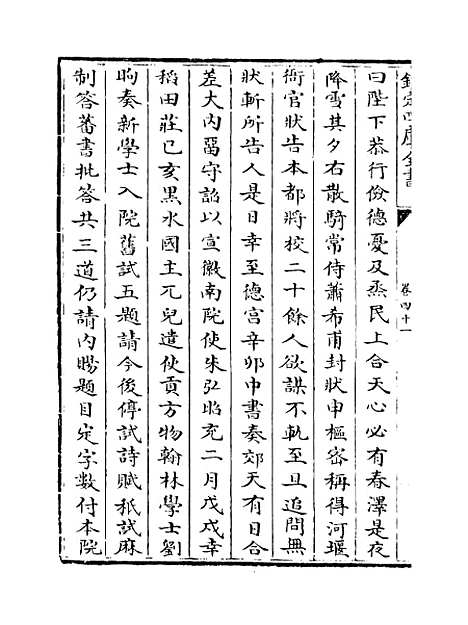 欽定四庫全書
卷四十一
曰陛下恭行儉德憂及烝民上合天心必有春澤是夜
降雪其夕右散騎常侍蕭希甫封狀申樞密稱得河堰
衙官狀告本都將校二十餘人欲謀不軌至旦追問無
狀斬所告人是日幸至德宮辛卯中書奏郊天有日合
差大内畱守詔以宣徽南院使朱弘昭充二月戊戌幸
稻田莊己亥黑水國主兀兒遣使貢方物翰林學士劉
昫奏新學士入院舊試五題請今後停試詩賦秖試麻
制答蕃書批答共三道仍請内賜題目定字數付本院